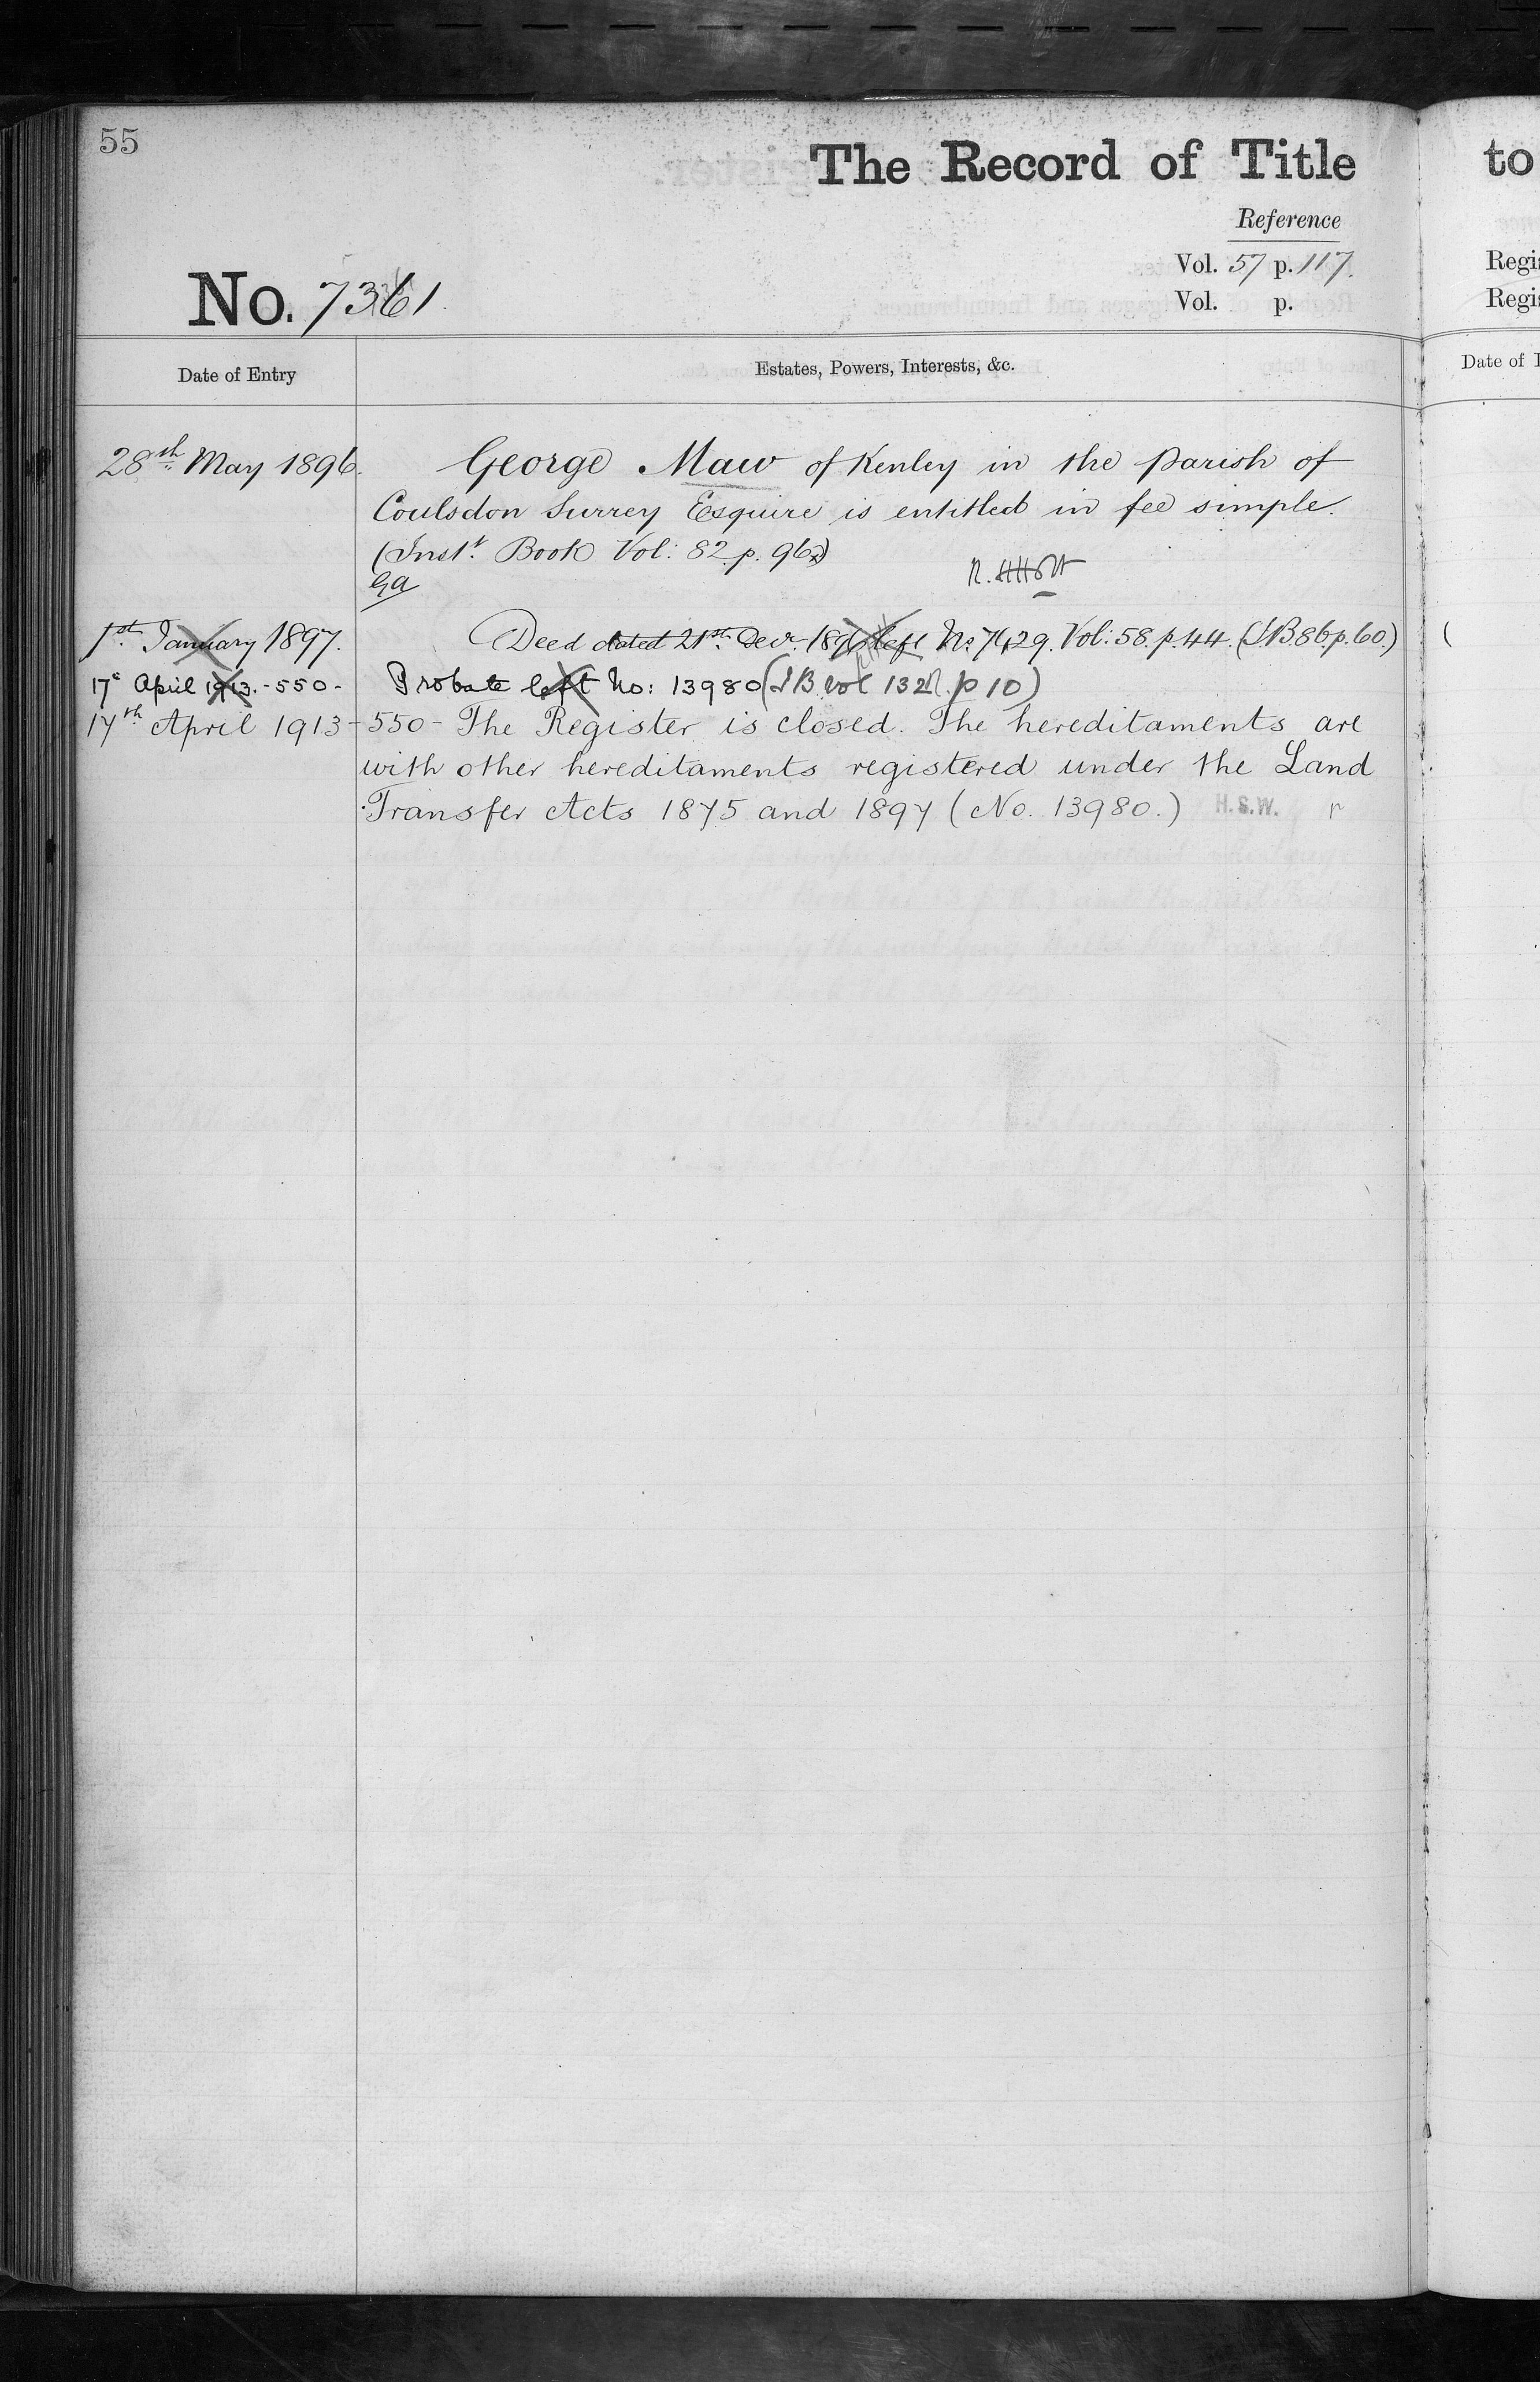 55
The Record of Title to
Reference
Vol. 57 p. 117.
Vol. p.
No. 7361
Regi
Regi
Date of Entry Estates, Powers, Interests, &c. Date of
28th May 1896. George Maw of Kenley in the Parish of
Coulsdon Surrey Esquire is entitled in fee simple.
(Inst. Book Vol: 82 p. 96)
GA
1st January 1897. Deed dated 21st Decr. 1896 left No 7429. Vol: 58. p. 44. (I.B. 86 p. 60.) (
17 April 1913. - 550 - Probate left No: 13980 (I B vol 132 p 10)
17th April 1913 - 550 - The Register is closed. The hereditaments are
with other hereditaments registered under the Land
Transfer Acts 1875 and 1897 (No. 13980.) H.S.W.